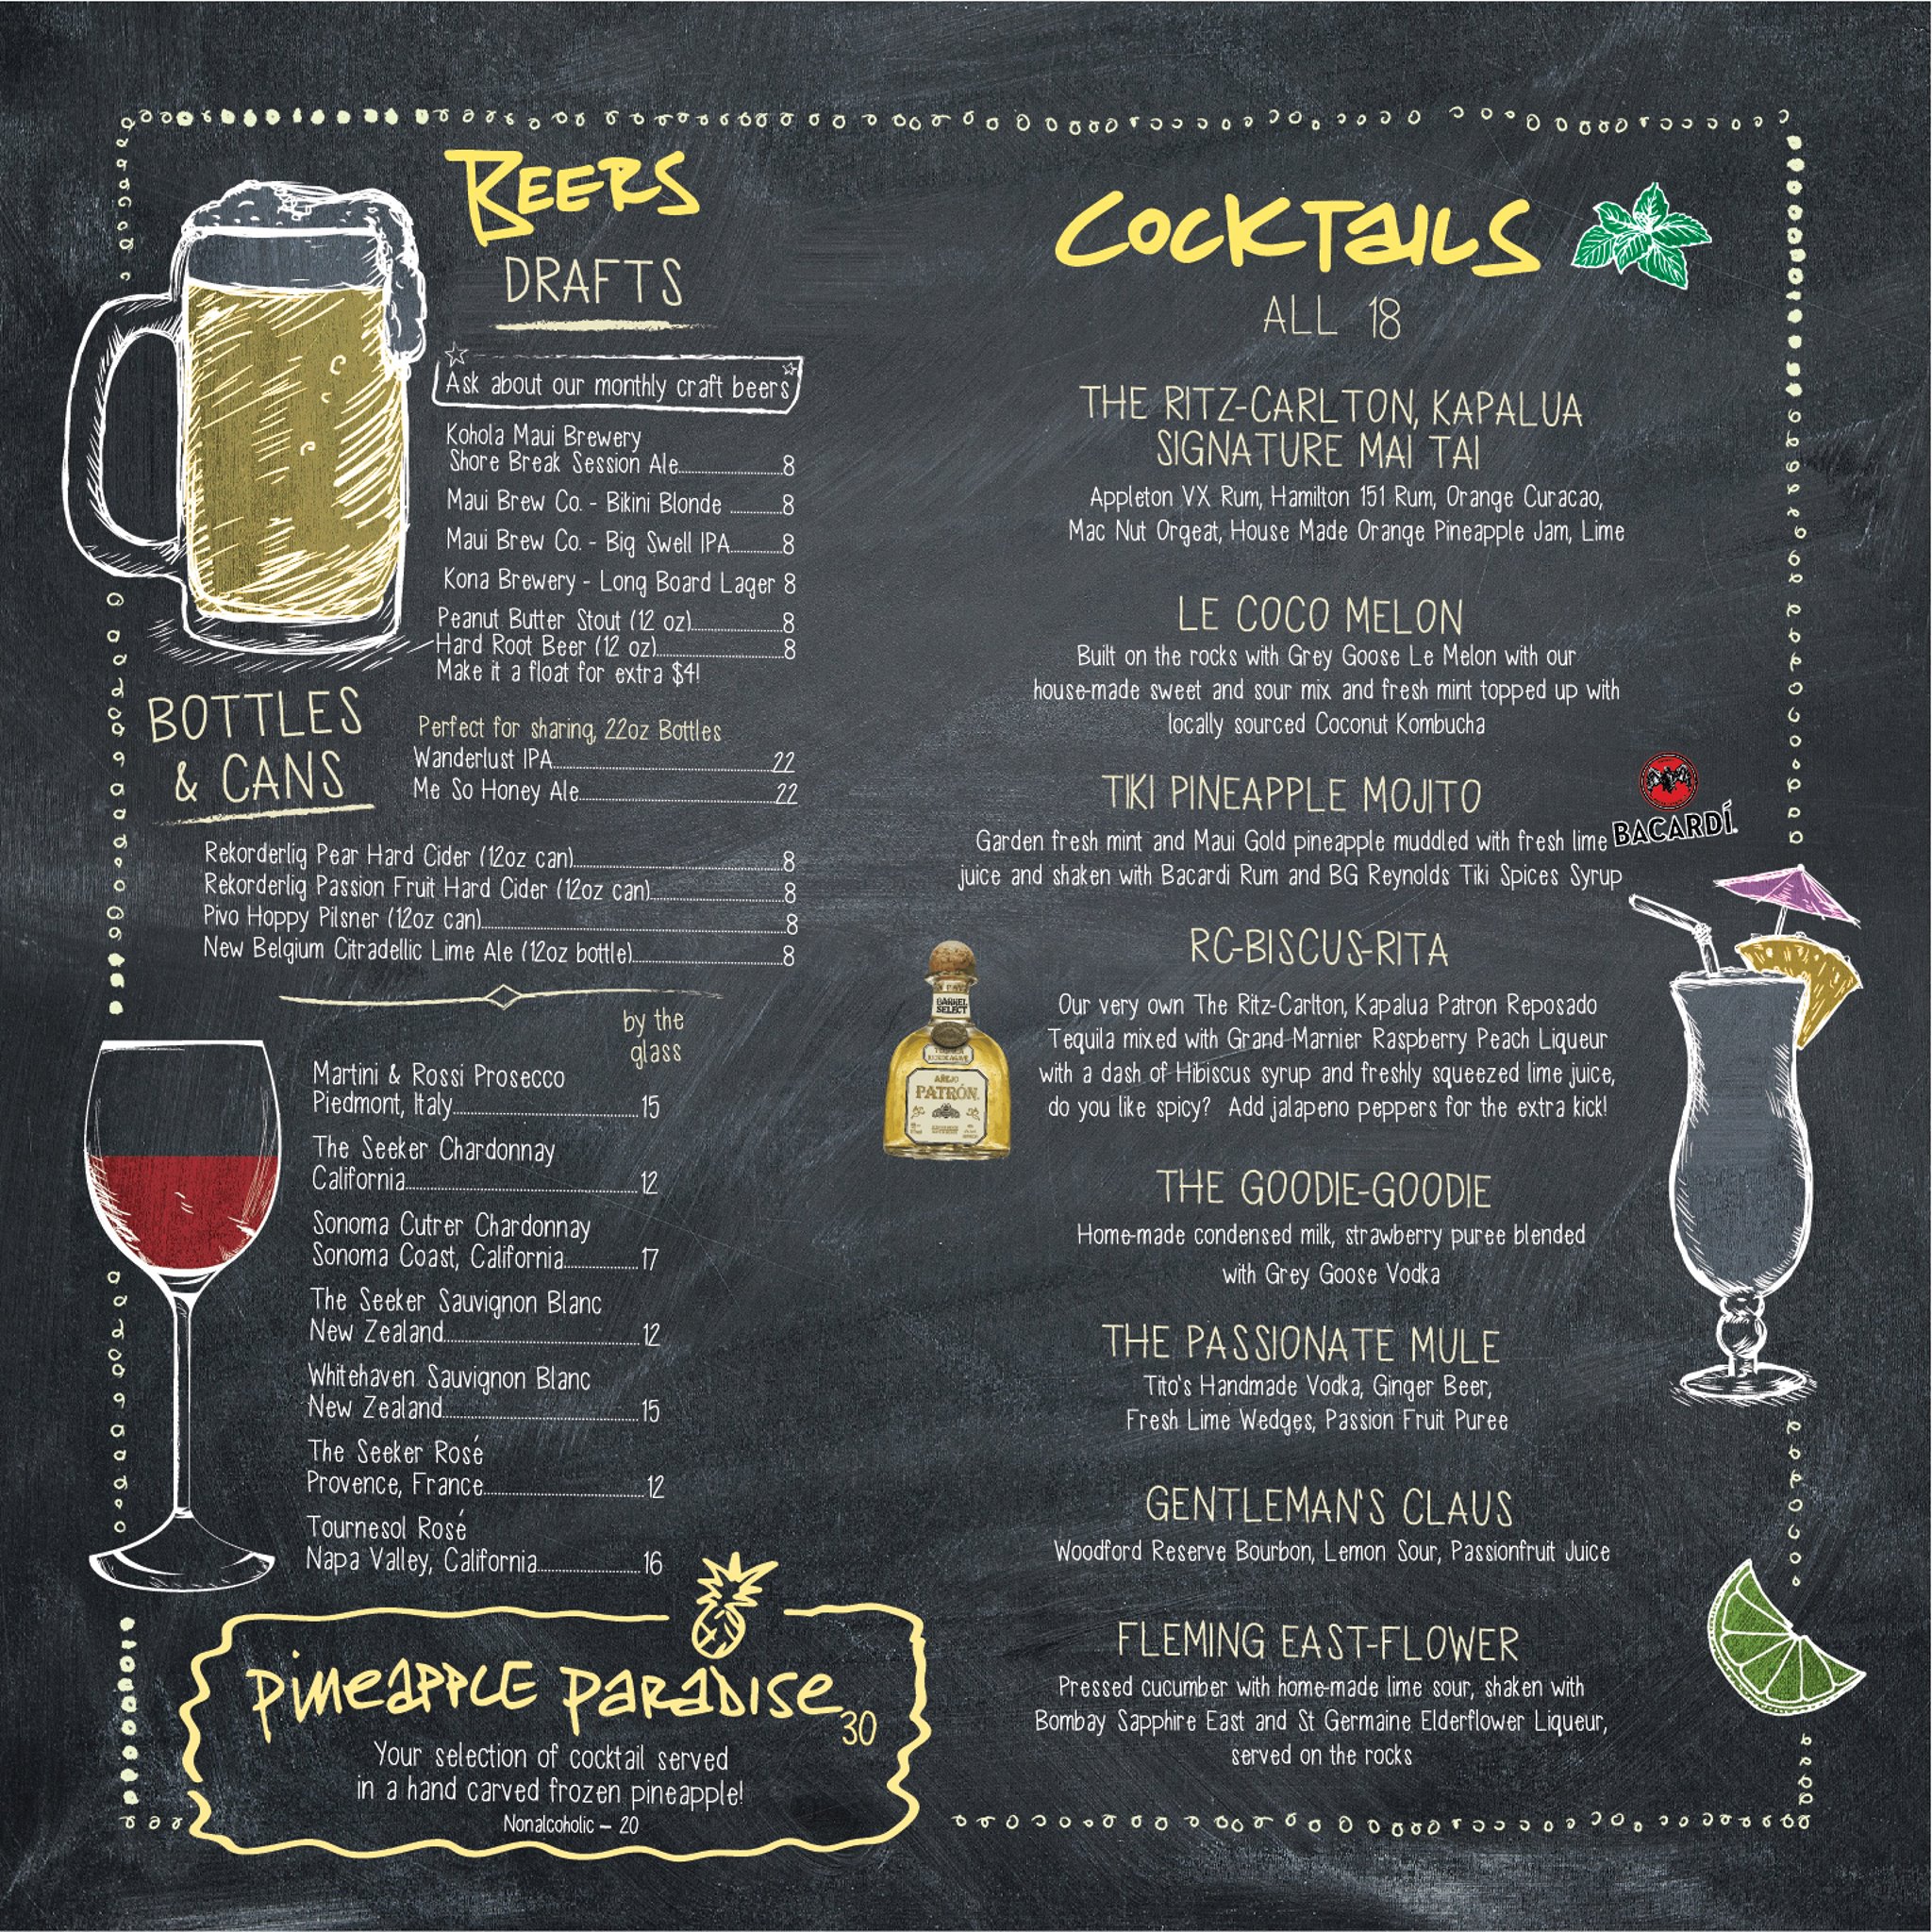 BEERS
DRAFTS
Ask about our monthly craft beers
Kohola Maui Brewery
Shore Break Session Ale 8
Maui Brew Co. - Bikini Blonde 8
Maui Brew Co. - Big Swell IPA 8
Kona Brewery - Long Board Lager 8
Peanut Butter Stout (12 oz) 8
Hard Root Beer (12 oz) 8
Make it a float for extra $4!
BOTTLES
& CANS
Perfect for sharing, 22oz Bottles
Wanderlust IPA 22
Me So Honey Ale 22
Rekorderlig Pear Hard Cider (12oz can) 8
Rekorderlig Passion Fruit Hard Cider (12oz can) 8
Pivo Hoppy Pilsner (12oz can) 8
New Belgium Citradellic Lime Ale (12oz bottle) 8
by the
glass
Martini & Rossi Prosecco
Piedmont, Italy 15
The Seeker Chardonnay
California 12
Sonoma Cutrer Chardonnay
Sonoma Coast, California 17
The Seeker Sauvignon Blanc
New Zealand 12
Whitehaven Sauvignon Blanc
New Zealand 15
The Seeker Rosé
Provence, France 12
Tournesol Rosé
Napa Valley, California 16
PINEAPPLE PARADISE 30
Your selection of cocktail served
in a hand carved frozen pineapple!
Nonalcoholic – 20
COCKTAILS
ALL 18
THE RITZ-CARLTON, KAPALUA
SIGNATURE MAI TAI
Appleton VX Rum, Hamilton 151 Rum, Orange Curacao,
Mac Nut Orgeat, House Made Orange Pineapple Jam, Lime
LE COCO MELON
Built on the rocks with Grey Goose Le Melon with our
house-made sweet and sour mix and fresh mint topped up with
locally sourced Coconut Kombucha
TIKI PINEAPPLE MOJITO
Garden fresh mint and Maui Gold pineapple muddled with fresh lime
juice and shaken with Bacardi Rum and BG Reynolds Tiki Spices Syrup
BACARDÍ
RC-BISCUS-RITA
Our very own The Ritz-Carlton, Kapalua Patron Reposado
Tequila mixed with Grand Marnier Raspberry Peach Liqueur
with a dash of Hibiscus syrup and freshly squeezed lime juice,
do you like spicy? Add jalapeno peppers for the extra kick!
BARREL
SELECT
AÑEJO
PATRÓN
THE GOODIE-GOODIE
Home-made condensed milk, strawberry puree blended
with Grey Goose Vodka
THE PASSIONATE MULE
Tito's Handmade Vodka, Ginger Beer,
Fresh Lime Wedges, Passion Fruit Puree
GENTLEMAN'S CLAUS
Woodford Reserve Bourbon, Lemon Sour, Passionfruit Juice
FLEMING EAST-FLOWER
Pressed cucumber with home-made lime sour, shaken with
Bombay Sapphire East and St Germaine Elderflower Liqueur,
served on the rocks